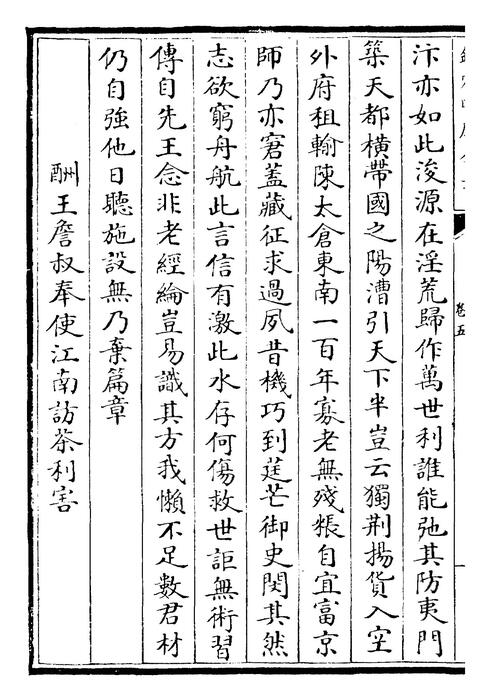 卷五
汴亦如此浚源在淫荒歸作萬世利誰能弛其防夷門
築天都橫帶國之陽漕引天下半豈云獨荆揚貨入空
外府租輸陳太倉東南一百年寡老無殘粻自宜富京
師乃亦窘蓋藏征求過夙昔機巧到筳芒御史閔其然
志欲窮舟航此言信有激此水存何傷救世詎無術習
傳自先王念非老經綸豈易識其方我懶不足數君材
仍自強他日聽施設無乃棄篇章
酬王詹叔奉使江南訪茶利害